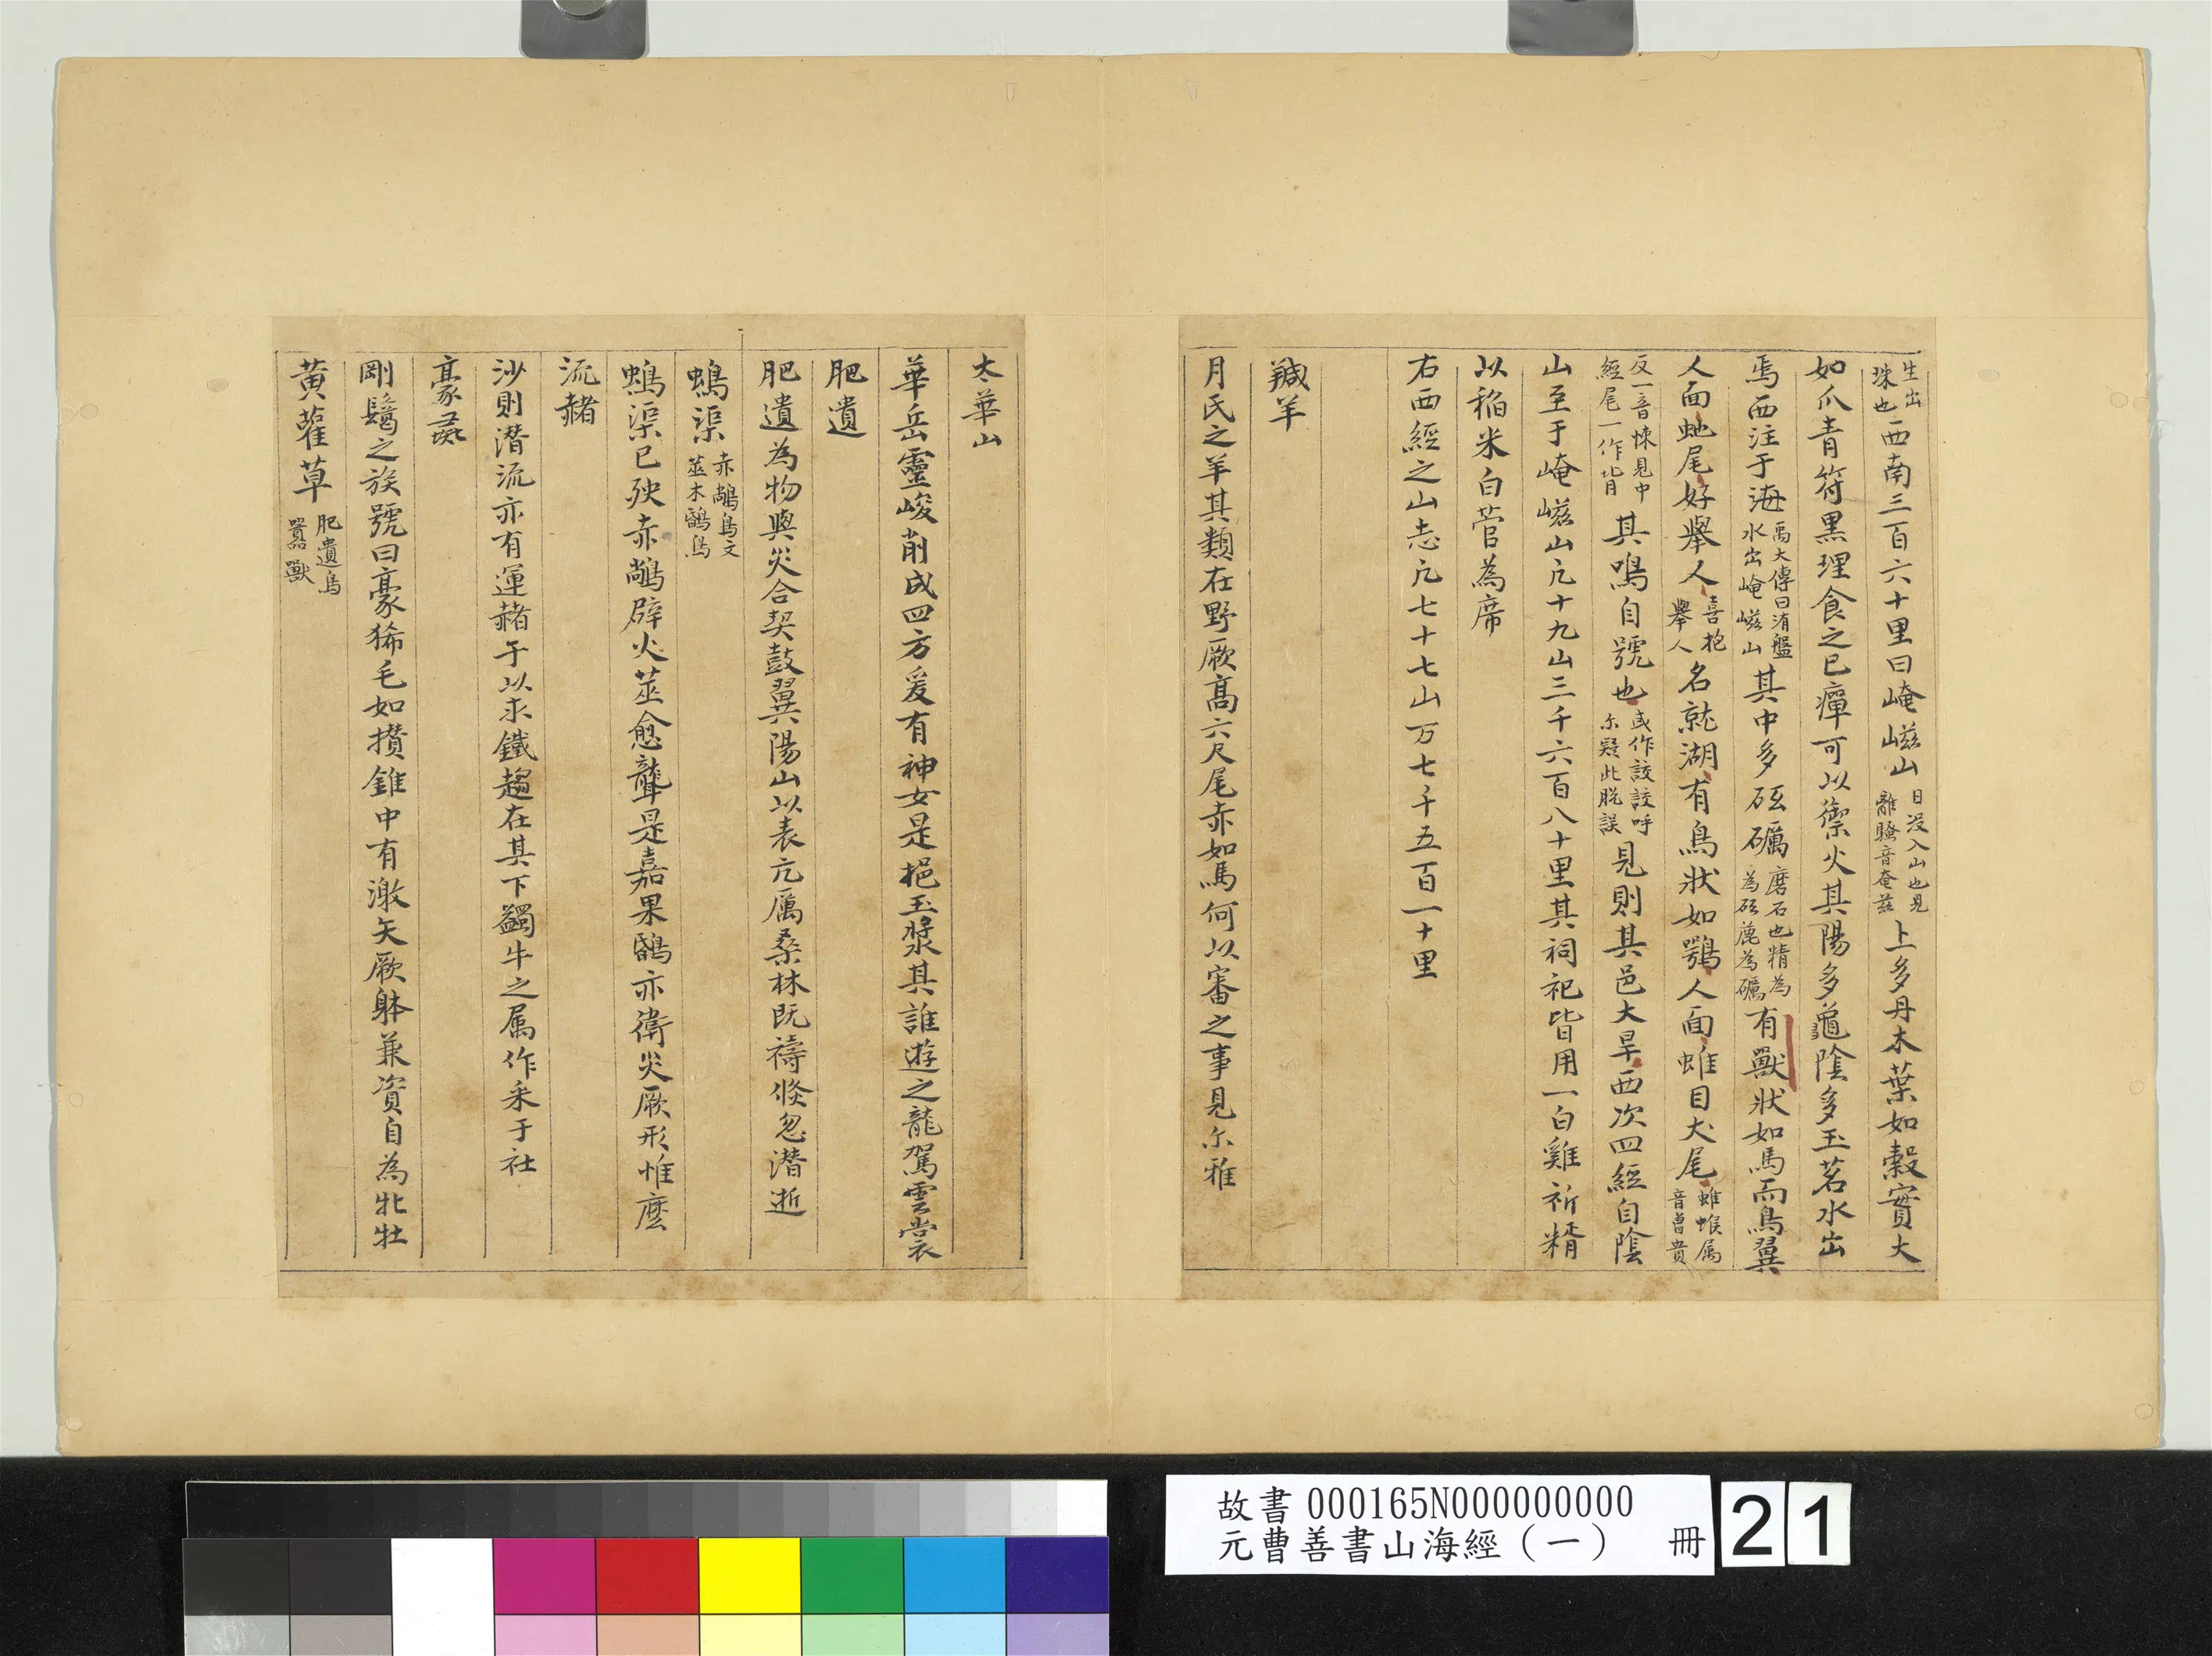 生出珠也西南三百六十里曰崦嵫山日没入山也見離騷音奄茲上多丹木葉如穀實大
如爪青符黑理食之已癉可以禦火其陽多龜陰多玉苕水出
焉西注于海禹大傳曰洧盤水出崦嵫山其中多砥礪磨石也精為砥麁為礪有獸狀如馬而鳥翼
人面虵尾好舉人喜抱舉人名就湖有鳥狀如鶚人面蜼目犬尾蜼蝯属音曹貴
反一音悚見中經尾一作背其鳴自號也或作設設呼尒疑此脱誤見則其邑大旱西次四經自陰
山至于崦嵫山凢十九山三千六百八十里其祠祀皆用一白雞祈糈
以稲米白菅為席
右西經之山志凢七十七山万七千五百一十里
羬羊
月氏之羊其類在野厥髙六尺尾赤如馬何以審之事見尒雅
太華山
華岳靈峻削成四方爰有神女是挹玉漿其誰遊之龍駕雲裳
肥遺
肥遺為物與災合契鼓翼陽山以表亢厲桑林既禱倐忽潜逝
䳋渠赤鷩鳥文莖木鶥鳥
䳋渠已殃赤鷩辟火莖愈聾是嘉果鶥亦衛災厥形惟麽
流赭
沙則潜流亦有運赭于以求鐵趨在其下蠲牛之属作采于社
豪彘
剛鬣之族號曰豪狶毛如攢錐中有激矢厥躰兼資自為牝牡
黃雚草肥遺鳥嚻獸
故書 000165N000000000
元曹善書山海經（一） 冊 21